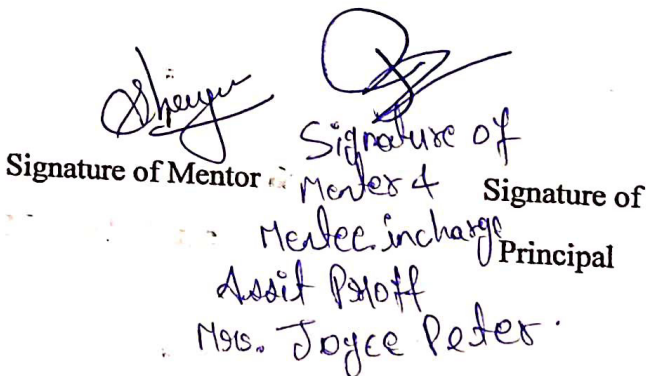 Signature of Mentor
Signature of
Menter &
Mentee incharge
Assit Proff
Mrs. Joyce Peter.
Signature of
Principal